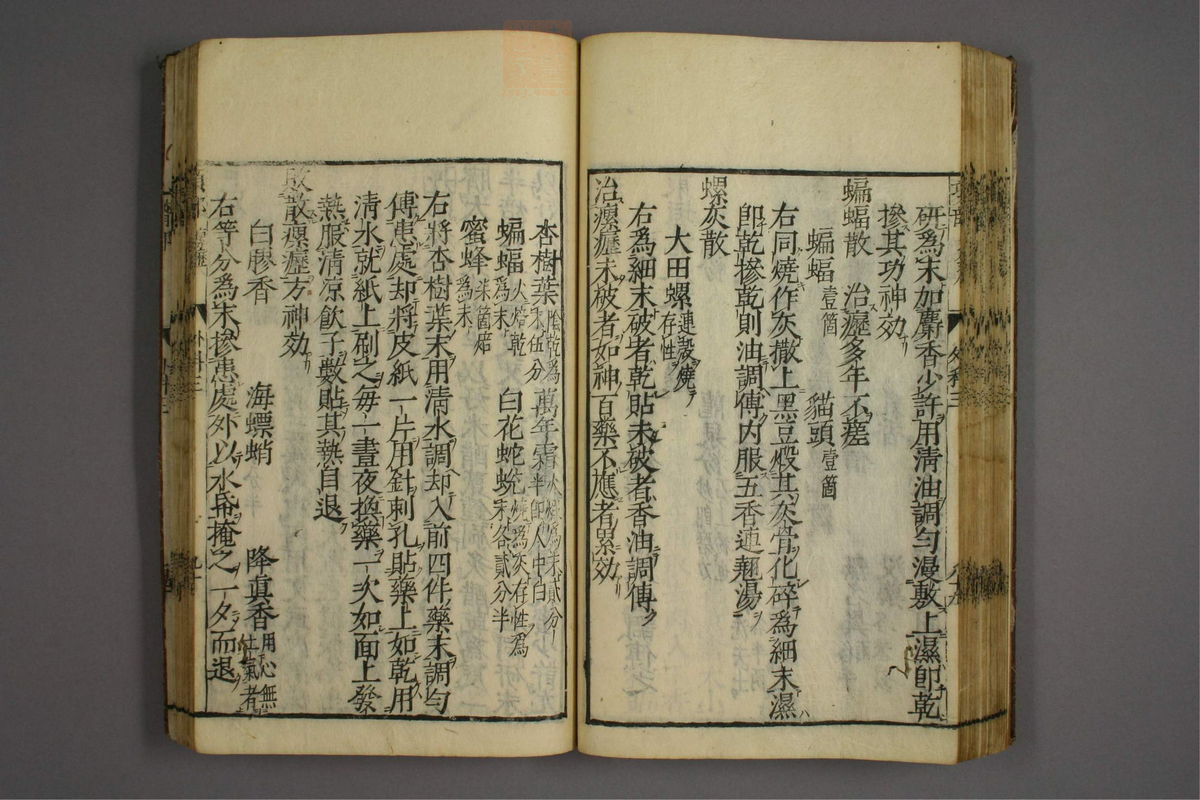 研爲末如麝香少許用清油調勻漫敷上濕即乾
摻其功神效
蝙蝠散 治瘰多年不瘥
蝙蝠壹箇 貓頭壹箇
右同燒作灰撒上黑豆煅其灰骨化碎爲細末濕
即乾摻乾則油調傅内服五香連翹湯
螺灰散
大田螺連殼燒存性
右爲細末破者乾貼未破者香油調傅
治瘰癧未破者如神百藥不應者累效
杏樹葉陰乾爲末伍分 萬年霜半 人中白火煅爲末貳分
蝙蝠火焙乾爲末 白花蛇蛻燒爲灰存性爲末各貳分半
蜜蜂 箇焙爲末
右將杏樹葉末用清水調却入前四件藥末調勻
傅患處却將皮紙一片用針刺孔貼藥上如乾用
清水就紙上刷之每一晝夜換藥一次如面上發
熱服清涼飲子數貼其熱自退
敗散瘰癧方神效
白膠香 海螵蛸 降眞香用心無土氣者
右等分爲末摻患處外以水 掩之一夕而退